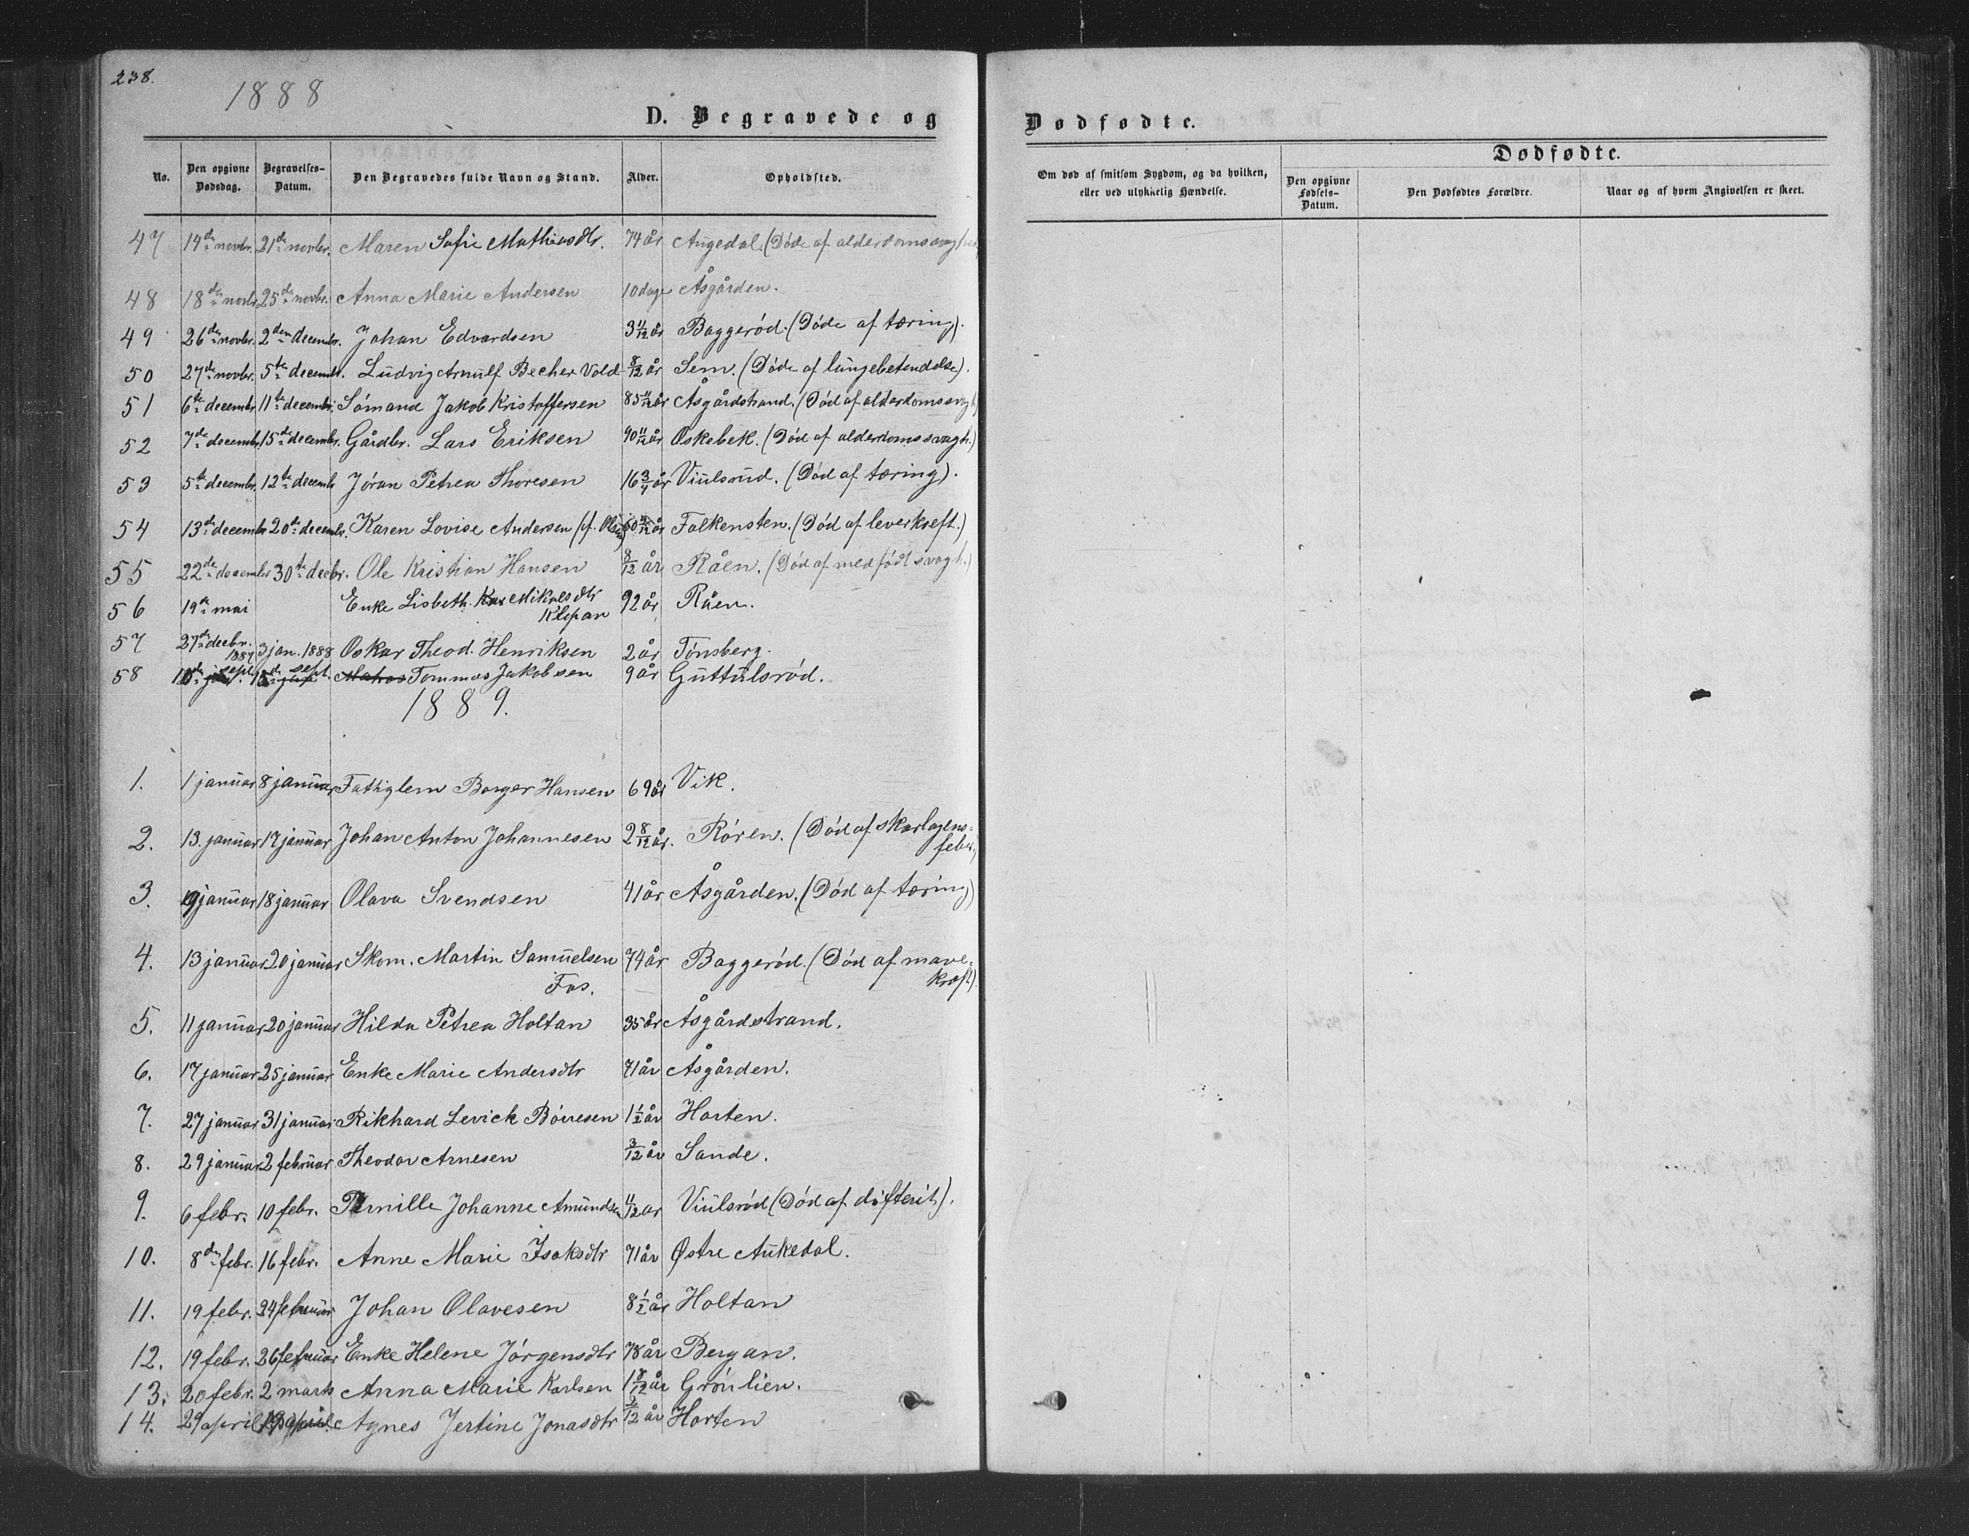 238.
1888
D. Begravede og
Dødfødte.
No. Den opgivne Dødsdag. Begravelses-Datum. Den Begravedes fulde Navn og Stand. Alder. Opholdsted.
Om død af smitsom Sygdom, og da hvilken, eller ved ulykkelig Hændelse. Dødfødte. Den opgivne Fødsels-Datum. Den Dødfødtes Forældre. Naar og af hvem Angivelsen er skeet.
47 14de novbr. 21de novbr. Maren Sofie Mathiasdtr. 74 år Augedal. (Døde af alderdomssvaghed
48 18de novbr. 25de novbr. Anna Marie Andersen 10 dage Åsgården.
49 26de novbr. 2den decembr. Johan Edvardsen 3 11/12 år Baggerød. (Døde af tæring).
50 27de novbr. 5te decembr. Ludvig Arnulf Becher Vold 8/12 år Sem. (Døde af lungebetendelse).
51 6te decembr. 11te decembr. Sømand Jakob Kristoffersen 85 11/12 år Åsgårdstrand. (Død af alderdomssvagh.
52 7de decembr. 15de decembr. Gårdbr. Lars Eriksen 90 11/12 år Øskebek. (Død af alderdomssvagh.)
53 5te decembr. 12te decembr Jøran Petrea Thoresen 16 3/4 år Viulsrud. (Død af tæring).
54 13de decembr 20de decembr. Karen Lovise Andersen (f. år Falkensten. (Død af leverkreft.)
55 22de december 30te decbr. Ole Kristian Hansen 8/12 år Råen. (Død af medfødt svagh.)
56 19de mai Enke Lisbeth Mikalsdtr 92 år Råen.
Klopan
57 27de decbr. 1887 3 jan. 1888 Oskar Theod. Henriksen 2 år Tønsberg.
58 sept. sept. Matros Tommas Jakobsen 9 år Guttulsrød.
1889.
1. 1 januar 8 januar Fattiglem Borger Hansen 69 år Vik.
2. 13. januar 17 januar Johan Anton Johannesen 2 8/12 år. Røren. (Død af skarlagens-
feber)
3. 9 januar 18 januar Olava Svendsen 41 år Åsgården. (Død af tæring)
4. 13 januar 20 januar Skom. Martin Samuelsen 74 år Baggerød. (Død af mave-
Fos. kræft)
5. 11 januar 20 januar Hilda Petrea Holtan 35 år Åsgårdstrand.
6. 17 januar 25 januar Enke Marie Andersdtr 71 år Åsgården.
7. 27 januar 31 januar Rikhard Levick Børresen 1 1/2 år Horten.
8. 29 januar 2 februar Theodor Arnesen 3/12 år Sande.
9. 6 febr. 10 febr. Pernille Johanne Amundsen 11/12 år Viulsrød (Død af difterit).
10. 8de febr. 16 febr. Anne Marie Isaksdtr 71 år Østre Aukedal.
11. 19 febr. 24 februar Johan Olavesen 8 1/2 år Holtan
12. 19 febr. 26 februar Enke Helene Jørgensdtr 78 år Bergan.
13. 20 febr. 2 marts Anna Marie Karlsen 1 8/12 år Grønlien.
14. 29 april Agnes Jertine Jonasdtr 2/12 år Horten